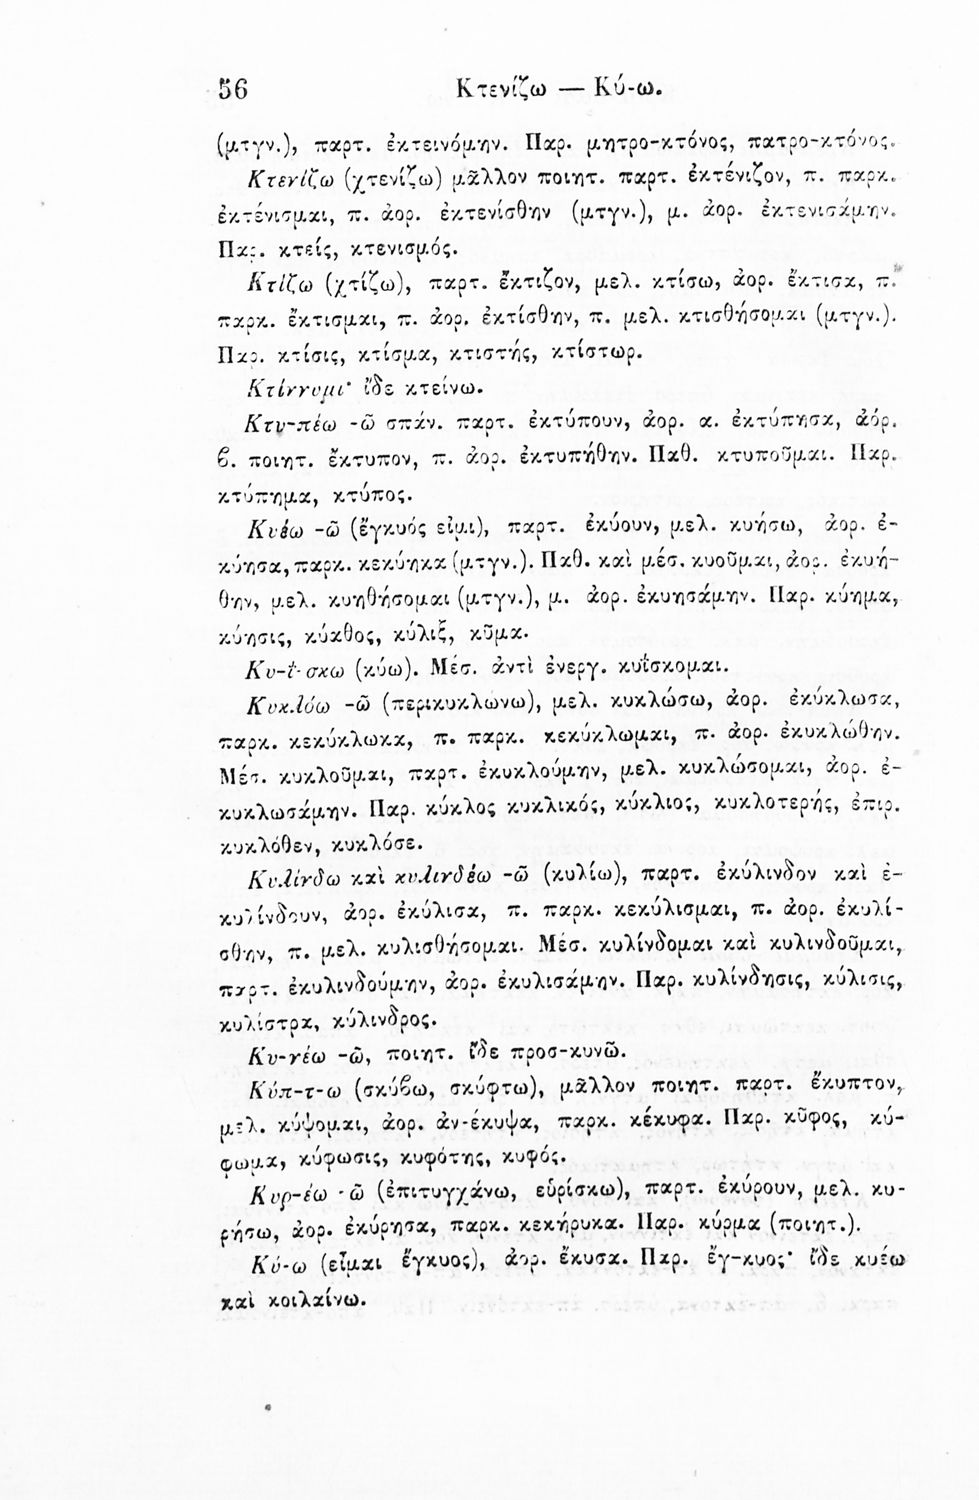 56 Κτενίζω — Κύ-ω.
(μτγν.), παρτ. ἐκτεινόμην. Παρ. μητρο-κτόνος, πατρο-κτόνος.
Κτενίζω (χτενίζω) μᾶλλον ποιητ. παρτ. ἐκτένιζον, π. παρκ.
ἐκτένισμαι, π. ἀορ. ἐκτενίσθην (μτγν.), μ. ἀορ. ἐκτενισάμην.
Παρ. κτείς, κτενισμός.
Κτίζω (χτίζω), παρτ. ἔκτιζον, μελ. κτίσω, ἀορ. ἔκτισα, π.
παρκ. ἔκτισμαι, π. ἀορ. ἐκτίσθην, π. μελ. κτισθήσομαι (μτγν.).
Παρ. κτίσις, κτίσμα, κτιστής, κτίστωρ.
Κτίννυμι· ἴδε κτείνω.
Κτυ-πέω -ῶ σπάν. παρτ. ἐκτύπουν, ἀορ. α. ἐκτύπησα, ἀόρ.
β. ποιητ. ἔκτυπον, π. ἀορ. ἐκτυπήθην. Παθ. κτυποῦμαι. Παρ.
κτύπημα, κτύπος.
Κυέω -ῶ (ἔγκυός εἰμι), παρτ. ἐκύουν, μελ. κυήσω, ἀορ. ἐ-
κύησα, παρκ. κεκύηκα (μτγν.). Παθ. καὶ μέσ. κυοῦμαι, ἀορ. ἐκυή-
θην, μελ. κυηθήσομαι (μτγν.), μ. ἀορ. ἐκυησάμην. Παρ. κύημα,
κύησις, κύαθος, κύλιξ, κῦμα.
Κυ-ΐ-σκω (κύω). Μέσ. ἀντὶ ἐνεργ. κυΐσκομαι.
Κυκλόω -ῶ (περικυκλώνω), μελ. κυκλώσω, ἀορ. ἐκύκλωσα,
παρκ. κεκύκλωκα, π. παρκ. κεκύκλωμαι, π. ἀορ. ἐκυκλώθην.
Μέσ. κυκλοῦμαι, παρτ. ἐκυκλούμην, μελ. κυκλώσομαι, ἀορ. ἐ-
κυκλωσάμην. Παρ. κύκλος κυκλικός, κύκλιος, κυκλοτερής, ἐπιρ.
κυκλόθεν, κυκλόσε.
Κυλίνδω καὶ κυλινδέω -ῶ (κυλίω), παρτ. ἐκύλινδον καὶ ἐ-
κυλίνδουν, ἀορ. ἐκύλισα, π. παρκ. κεκύλισμαι, π. ἀορ. ἐκυλί-
σθην, π. μελ. κυλισθήσομαι. Μέσ. κυλίνδομαι καὶ κυλινδοῦμαι,
παρτ. ἐκυλινδούμην, ἀορ. ἐκυλισάμην. Παρ. κυλίνδησις, κύλισις,
κυλίστρα, κύλινδρος.
Κυ-νέω -ῶ, ποιητ. ἴδε προσ-κυνῶ.
Κύπ-τ-ω (σκύβω, σκύφτω), μᾶλλον ποιητ. παρτ. ἔκυπτον,
μελ. κύψομαι, ἀορ. ἀν-έκυψα, παρκ. κέκυφα. Παρ. κῦφος, κύ-
φωμα, κύφωσις, κυφότης, κυφός.
Κυρ-έω -ῶ (ἐπιτυγχάνω, εὑρίσκω), παρτ. ἐκύρουν, μελ. κυ-
ρήσω, ἀορ. ἐκύρησα, παρκ. κεκήρυκα. Παρ. κύρμα (ποιητ.).
Κύ-ω (εἶμαι ἔγκυος), ἀορ. ἔκυσα. Παρ. ἔγ-κυος· ἴδε κυέω
καὶ κοιλαίνω.